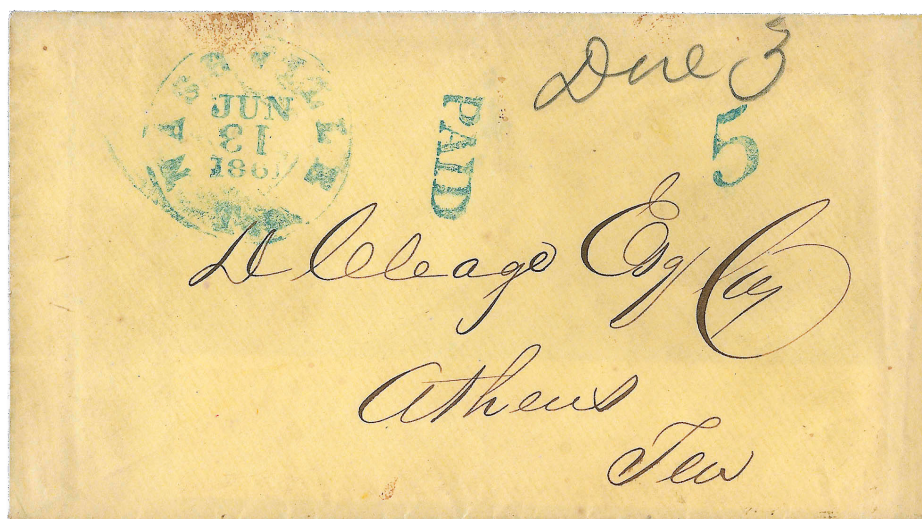 NASHVILLE
JUN
31
186
Te
PAID
Due 3
5
D Cleage Esq Csy
Athens
Ten